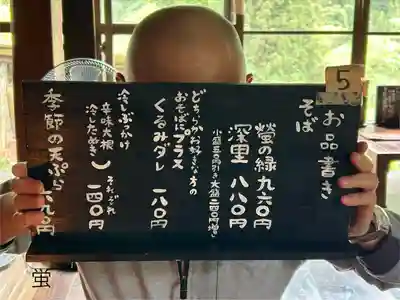 お品書き
5
そば
螢の緑 九六〇円
深里 八八〇円
小盛五〇円引き 大盛二四〇円増し
どちらかお好きな方の
おそばにプラス
くるみダレ 一八〇円
冷しぶっかけ
辛味大根
冷したぬき
それぞれ
一四〇円
季節の天ぷら 八九〇円
蛍